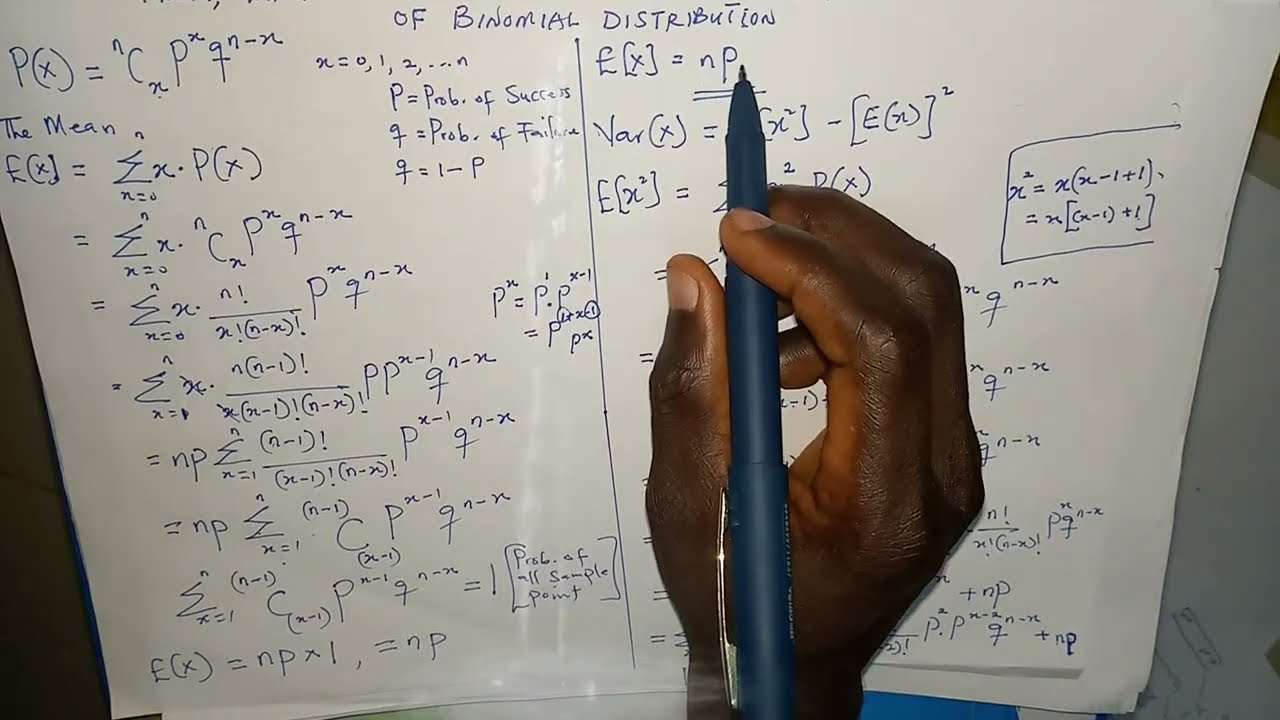 OF BINOMIAL DISTRIBUTION
P(x) = ⁿCₓ pˣ qⁿ⁻ˣ
x = 0, 1, 2, ... n
P = Prob. of Success
q = Prob. of Failure
q = 1 - P
The Mean
E[x] = Σₓ₌₀ⁿ x · P(x)
= Σₓ₌₀ⁿ x · ⁿCₓ Pˣ qⁿ⁻ˣ
= Σₓ₌₀ⁿ x · n! / x!(n-x)! Pˣ qⁿ⁻ˣ
Pˣ = P¹. Pˣ⁻¹
= P¹⁺ˣ⁻¹
Pˣ
= Σₓ₌₁ⁿ x · n(n-1)! / x(x-1)!(n-x)! P Pˣ⁻¹ qⁿ⁻ˣ
= np Σₓ₌₁ⁿ (n-1)! / (x-1)!(n-x)! Pˣ⁻¹ qⁿ⁻ˣ
= np Σₓ₌₁ⁿ ⁽ⁿ⁻¹⁾C₍ₓ₋₁₎ Pˣ⁻¹ qⁿ⁻ˣ
Σₓ₌₁ⁿ ⁽ⁿ⁻¹⁾C₍ₓ₋₁₎ Pˣ⁻¹ qⁿ⁻ˣ = 1
[Prob. of
all Sample
point]
E(x) = np × 1, = np
E[x] = np
Var(x) = [x²] - [E(x)]²
E[x²] = x² P(x)
x² = x(x-1+1)
= x[(x-1)+1]
ˣ qⁿ⁻ˣ
ˣ qⁿ⁻ˣ
qⁿ⁻ˣ
n! / x!(n-x)! Pˣ qⁿ⁻ˣ
+ np
P². Pˣ⁻² qⁿ⁻ˣ + np